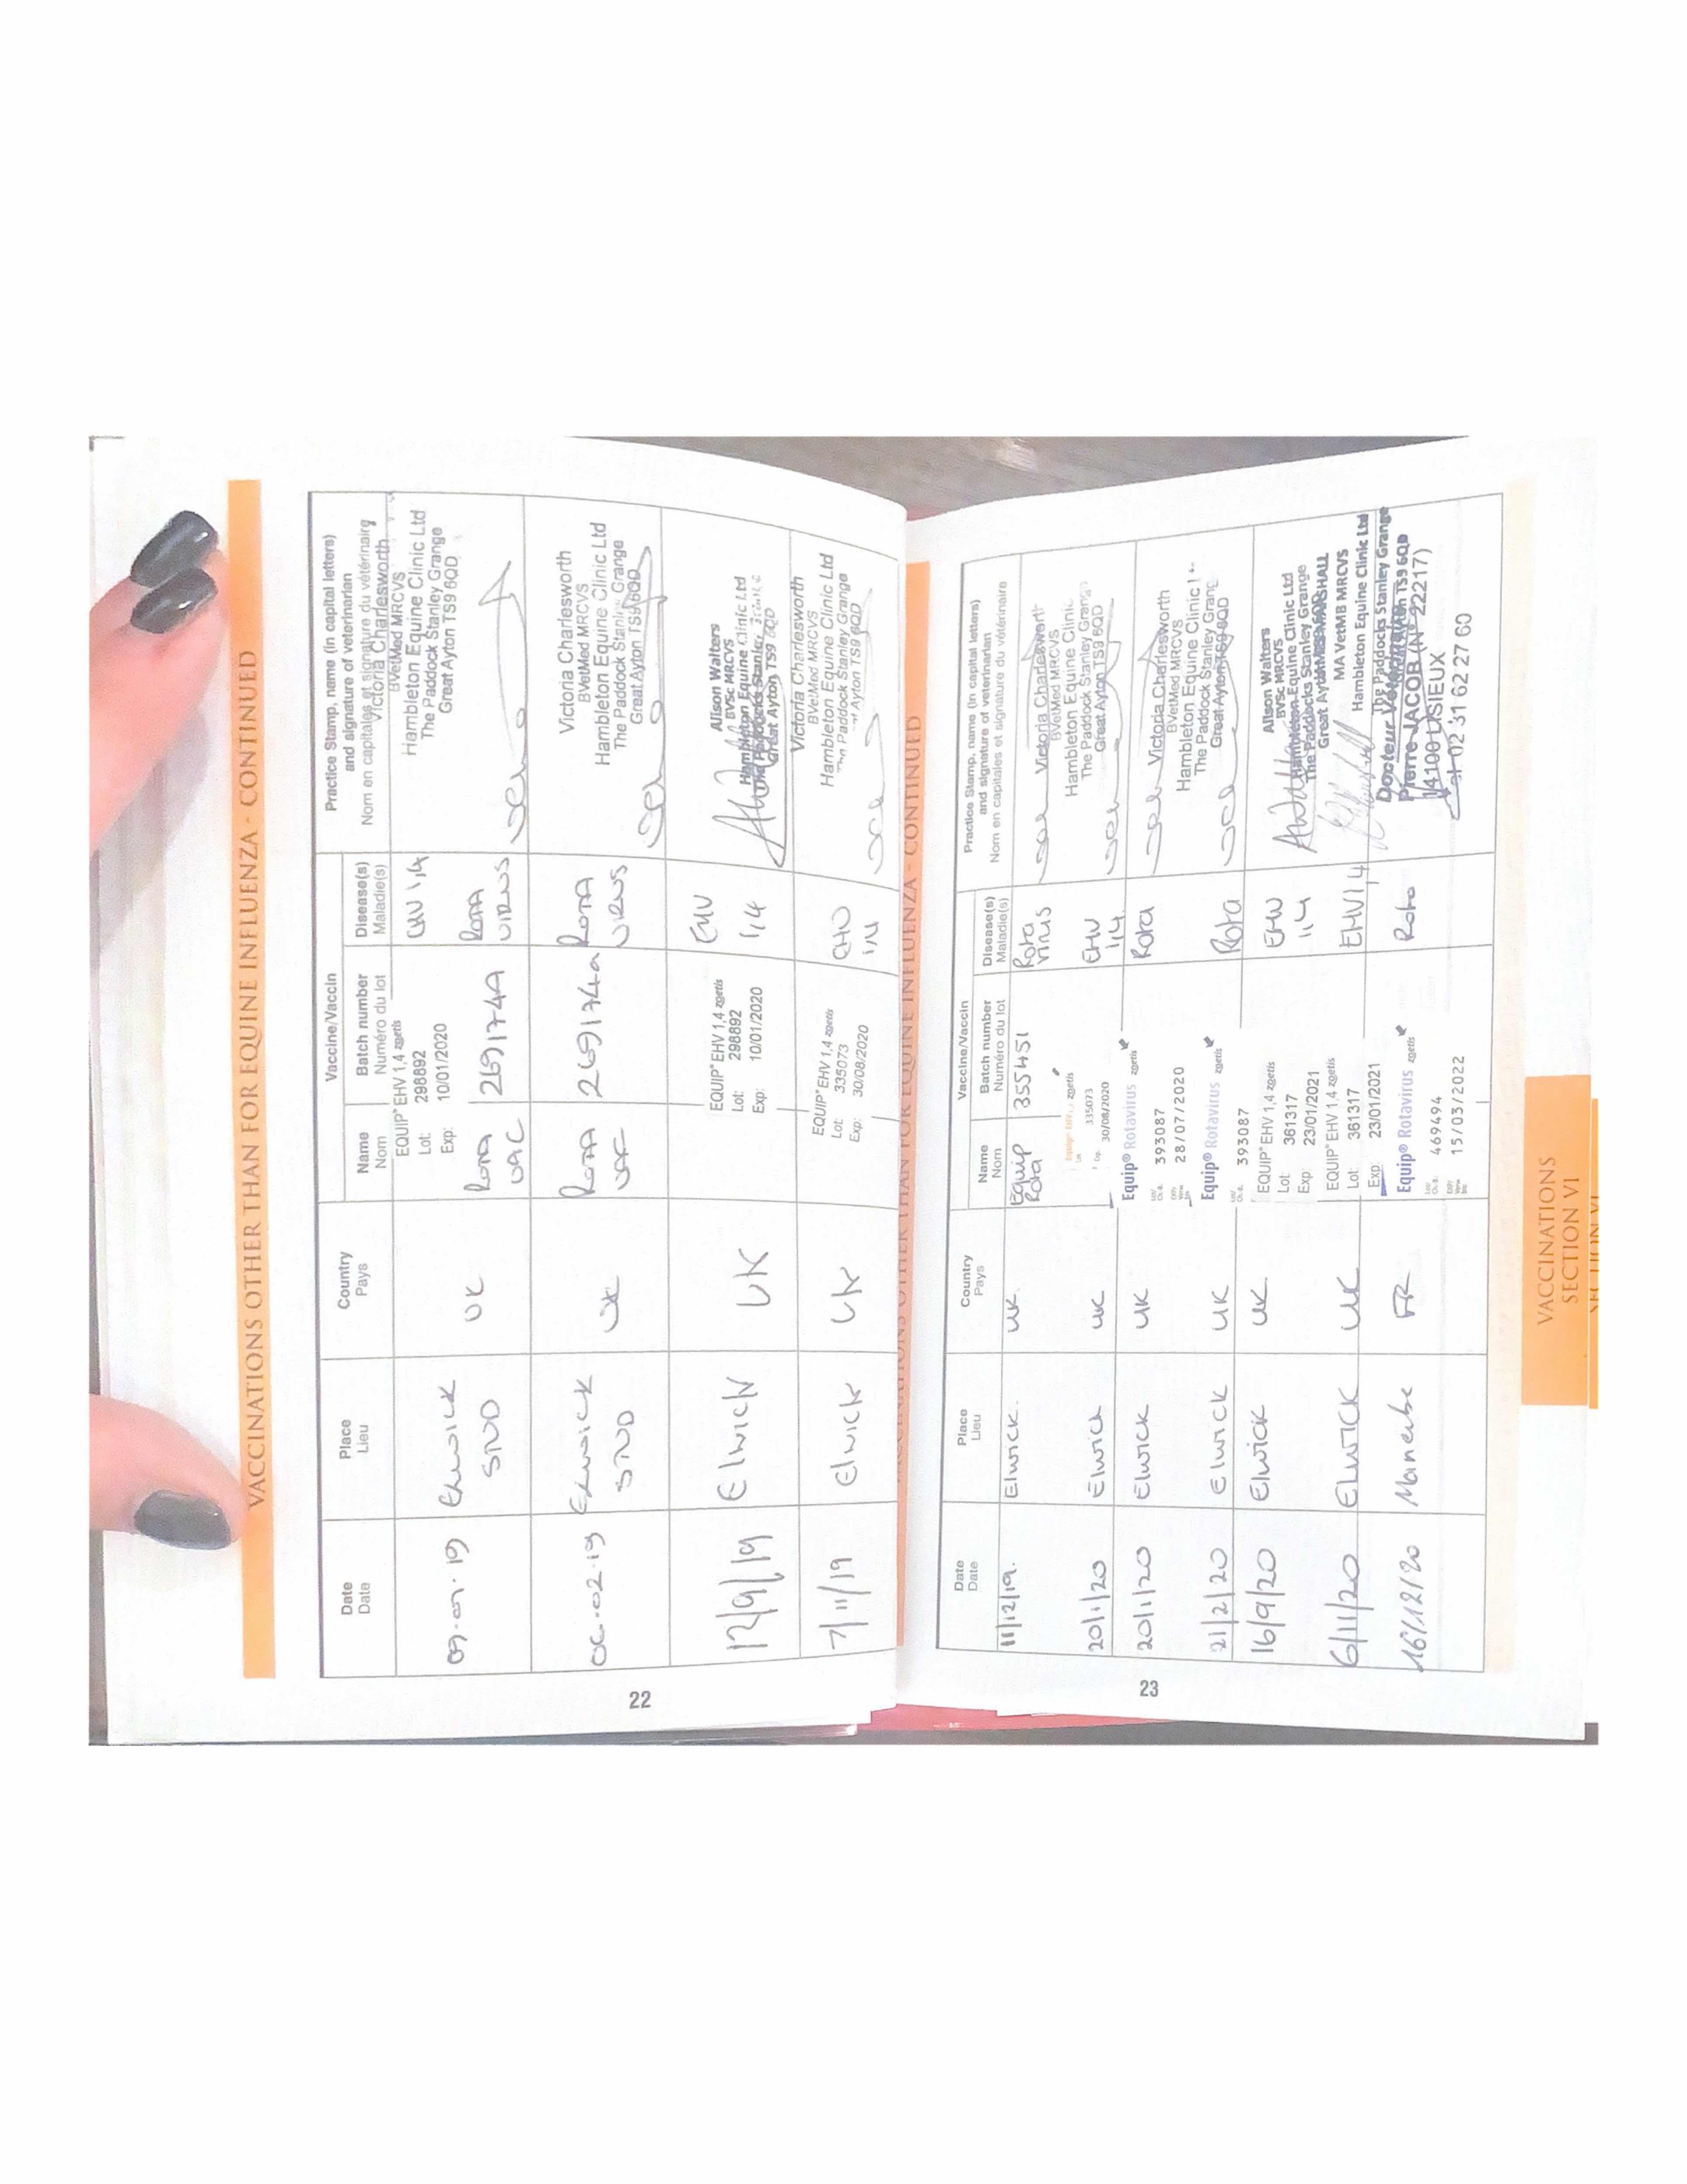 VACCINATIONS OTHER THAN FOR EQUINE INFLUENZA - CONTINUED
Date
Date
Place
Lieu
Country
Pays
Vaccine/Vaccin
Name
Nom
Batch number
Numéro du lot
Disease(s)
Maladie(s)
Practice Stamp, name (in capital letters)
and signature of veterinarian
Nom en capitales et signature du vétérinaire
STUD
UK
EQUIP® EHV 1,4 zoetis
Lot: 298892
Exp: 10/01/2020
EHV 1,4
ROTA
VAC
269174A
ROTA
VIRUS
Victoria Charlesworth
BVetMed MRCVS
Hambleton Equine Clinic Ltd
The Paddock Stanley Grange
Great Ayton TS9 6QD
STUD
UK
ROTA
269174a
ROTA
VIRUS
Victoria Charlesworth
BVetMed MRCVS
Hambleton Equine Clinic Ltd
The Paddock Stanley Grange
Great Ayton TS9 6QD
12/9/19
Elwick
UK
EQUIP® EHV 1,4 zoetis
Lot: 298892
Exp: 10/01/2020
EHV
1,4
Alison Walters
BVSc MRCVS
Hambleton Equine Clinic Ltd
Great Ayton TS9 6QD
7/11/19
Elwick
UK
EQUIP® EHV 1,4 zoetis
Lot: 335073
Exp: 30/08/2020
EHV
1,4
Victoria Charlesworth
BVetMed MRCVS
Hambleton Equine Clinic Ltd
Paddock Stanley Grange
Ayton TS9 6QD
22
VACCINATIONS OTHER THAN FOR EQUINE INFLUENZA - CONTINUED
Date
Date
Place
Lieu
Country
Pays
Vaccine/Vaccin
Name
Nom
Batch number
Numéro du lot
Disease(s)
Maladie(s)
Practice Stamp, name (in capital letters)
and signature of veterinarian
Nom en capitales et signature du vétérinaire
11/12/19.
Elwick.
UK.
Equip
Rota
355451
Rota
virus
Victoria Charlesworth
BVetMed MRCVS
Hambleton Equine Clinic
The Paddock Stanley Grange
Great Ayton TS9 6QD
20/1/20
Elwick
UK
zoetis
335073
30/08/2020
EHV
1,4
20/1/20
Elwick
UK
Equip® Rotavirus zoetis
393087
28/07/2020
Rota
Victoria Charlesworth
BVetMed MRCVS
Hambleton Equine Clinic
The Paddock Stanley Grang
Great Ayton TS9 6QD
21/2/20
Elwick
UK
Equip® Rotavirus zoetis
393087
Rota
16/9/20
Elwick
UK
EQUIP® EHV 1,4 zoetis
Lot 361317
Exp 23/01/2021
EHV
1,4
Alison Walters
BVSc MRCVS
Hambleton Equine Clinic Ltd
The Paddocks Stanley Grange
6/11/20
Elwick
UK
EQUIP® EHV 1,4 zoetis
Lot 361317
Exp: 23/01/2021
EHV1,4
MA VetMB MRCVS
Hambleton Equine Clinic Ltd
The Paddocks Stanley Grange
16/12/20
FR
Equip® Rotavirus zoetis
469494
15/03/2022
Rota
Pierre JACOB (N° 22217)
14100 LISIEUX
02 31 62 27 60
23
VACCINATIONS
SECTION VI